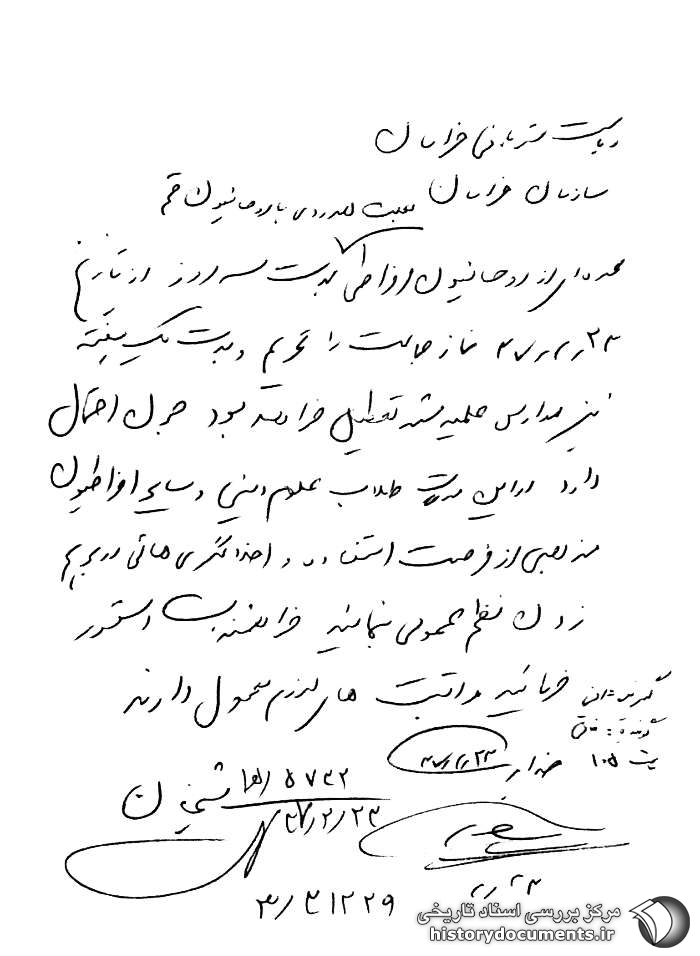 ریاست شهربانی خراسان
سازمان خراسان بعلت همدردی با روحانیون قم
عده‌ای از روحانیون افراطی بمدت سه روز از تاریخ
۳۷/۲/۲۳ نماز جماعت را تحریم و بمدت یک هفته
نیز مدارس علمیه مشهد تعطیل خواهد بود چون احتمال
دارد در این مدت طلاب علوم دینی و سایر افراطیون
مذهبی از فرصت استفاده و اخلالگری هائی در بهم
زدن نظم عمومی بنمایند خواهشمند است دستور
فرمائید مراقبت های لازم معمول دارند
گیرنده:
گوینده:
۱۰۵
۳۷/۲/۲۳
۵۷۴۲/ها شیخان
۳۷/۲/۲۳
۳/۳۱۲۲۹
مرکز بررسی اسناد تاریخی
historydocuments.ir